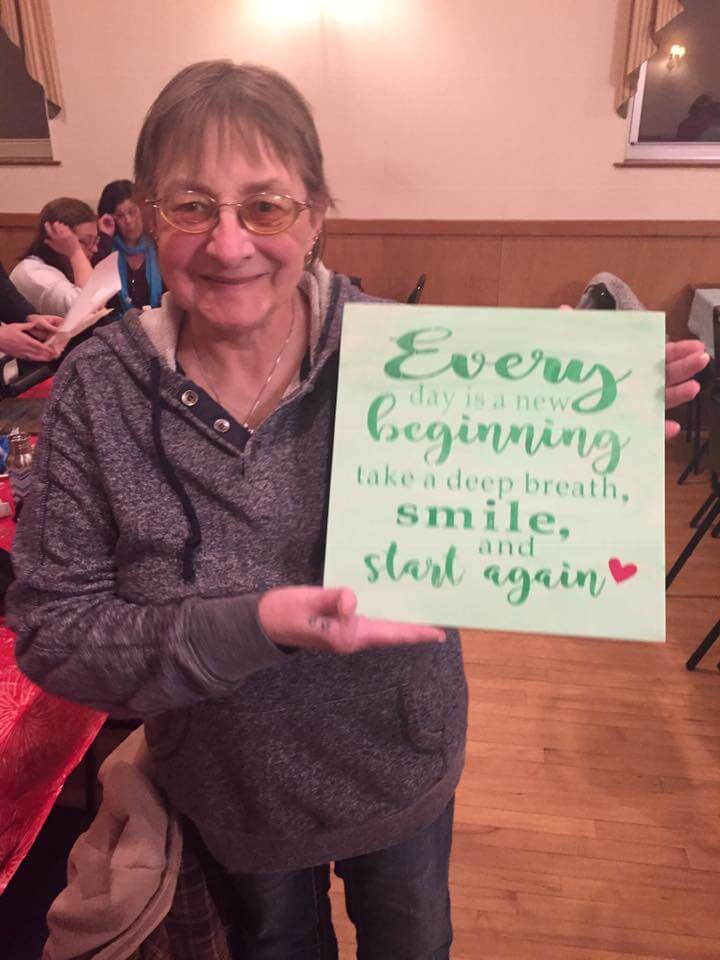 Every
day is a new
beginning
take a deep breath,
smile,
and
start again